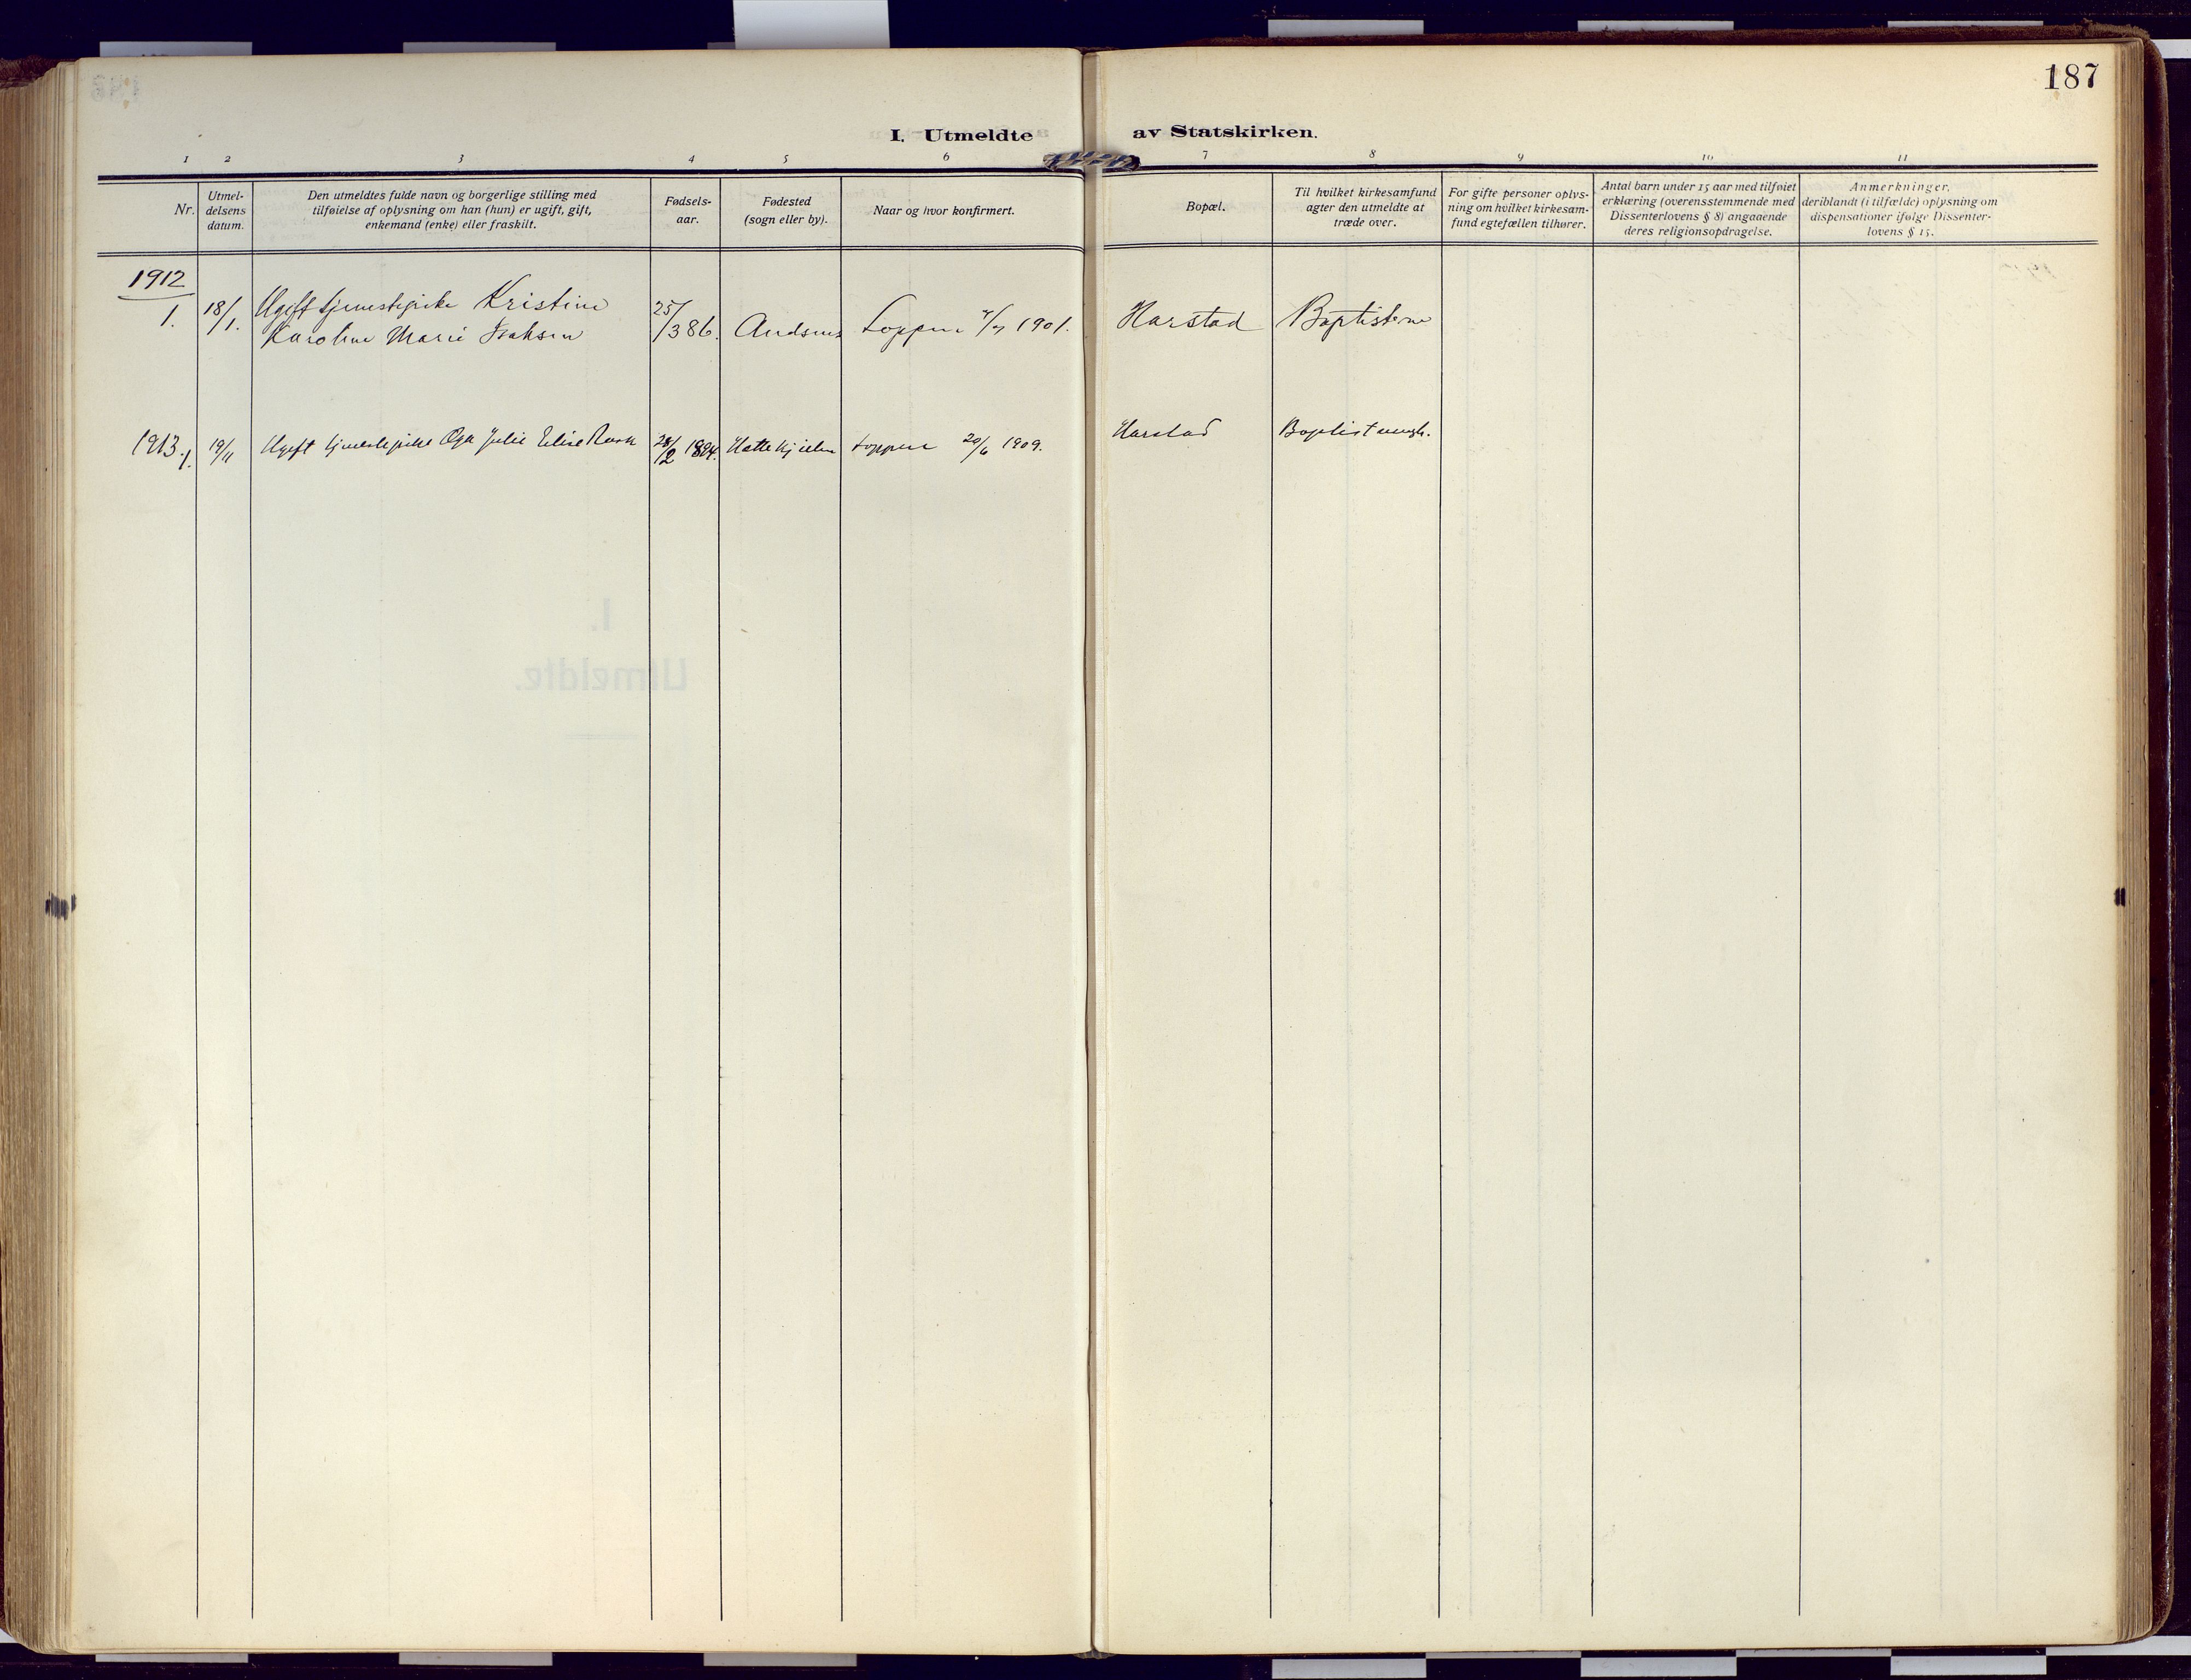 187
I. Utmeldte av Statskirken.
1 2 3 4 5 6 7 8 9 10 11
Nr.
Utmel-
delsens
datum.
Den utmeldtes fulde navn og borgerlige stilling med
tilføielse af oplysning om han (hun) er ugift, gift,
enkemand (enke) eller fraskilt.
Fødsels-
aar.
Fødested
(sogn eller by).
Naar og hvor konfirmert.
Bopæl.
Til hvilket kirkesamfund
agter den utmeldte at
træde over.
For gifte personer oplys-
ning om hvilket kirkesam-
fund egtefællen tilhører.
Antal barn under 15 aar med tilføiet
erklæring (overensstemmende med
Dissenterlovens § 8) angaaende
deres religionsopdragelse.
Anmerkninger,
deriblandt (i tilfælde) oplysning om
dispensationer ifølge Dissenter-
lovens § 15.
1912
1. 18/1. Ugift tjenestepike Kristine
Karoline Marie Isaksen
25/3 86. Loppen 1901. Harstad Baptisterne
1913. 1. 19/11 Ugift tjenestepike Julie Elise 28/2 1894. Loppen 20/6 1909. Harstad